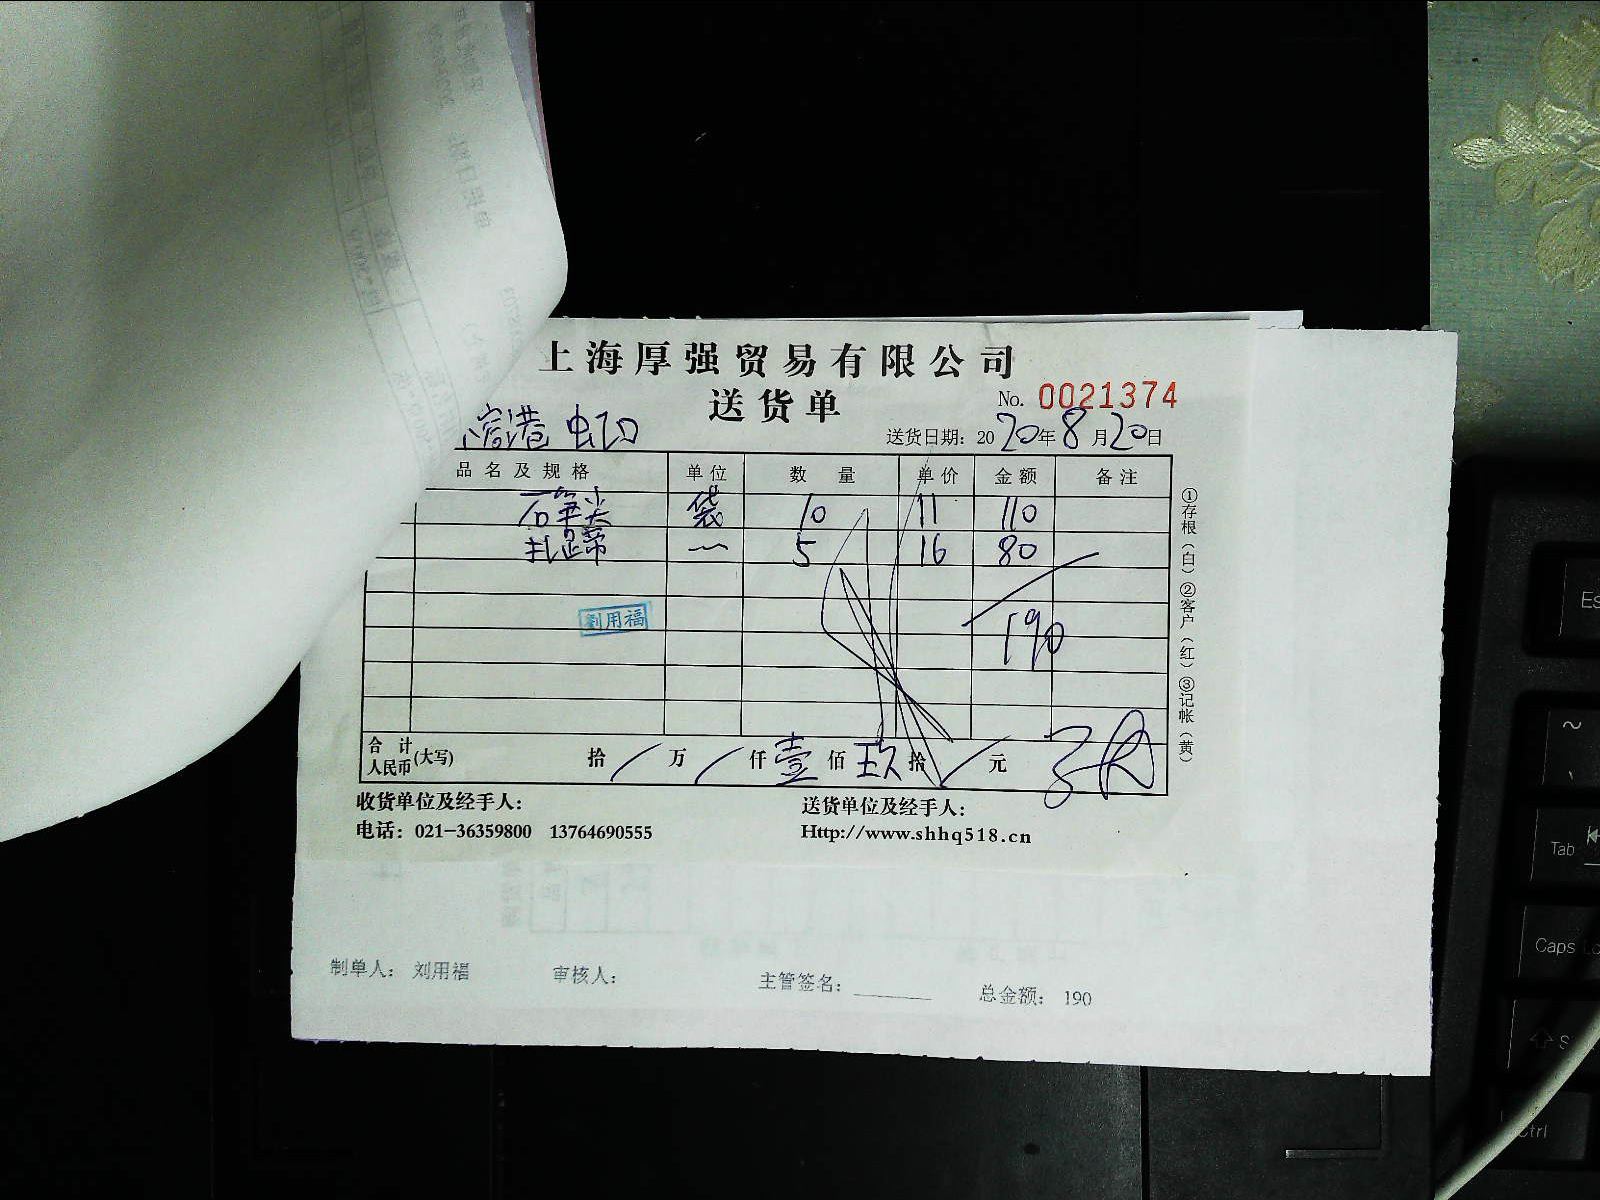 上海厚强贸易有限公司
送货单
No. 0021374
港 虹口
送货日期：2020年8月20日
品名及规格 单位 数量 单价 金额 备注
石笔尖 袋 10 11 110
扎带 〜 5 16 80
190
劉用福
合计人民币(大写) 拾/万/仟壹佰玖拾/元
①存根（白）②客户（红）③记帐（黄）
收货单位及经手人： 送货单位及经手人：
电话：021-36359800 13764690555 Http://www.shhq518.cn
制单人： 刘用福 审核人： 主管签名：______ 总金额： 190
Es
~
Tab
Caps Lo
Ctrl